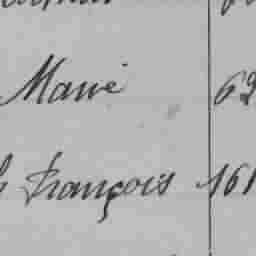 Marie 62
François 161